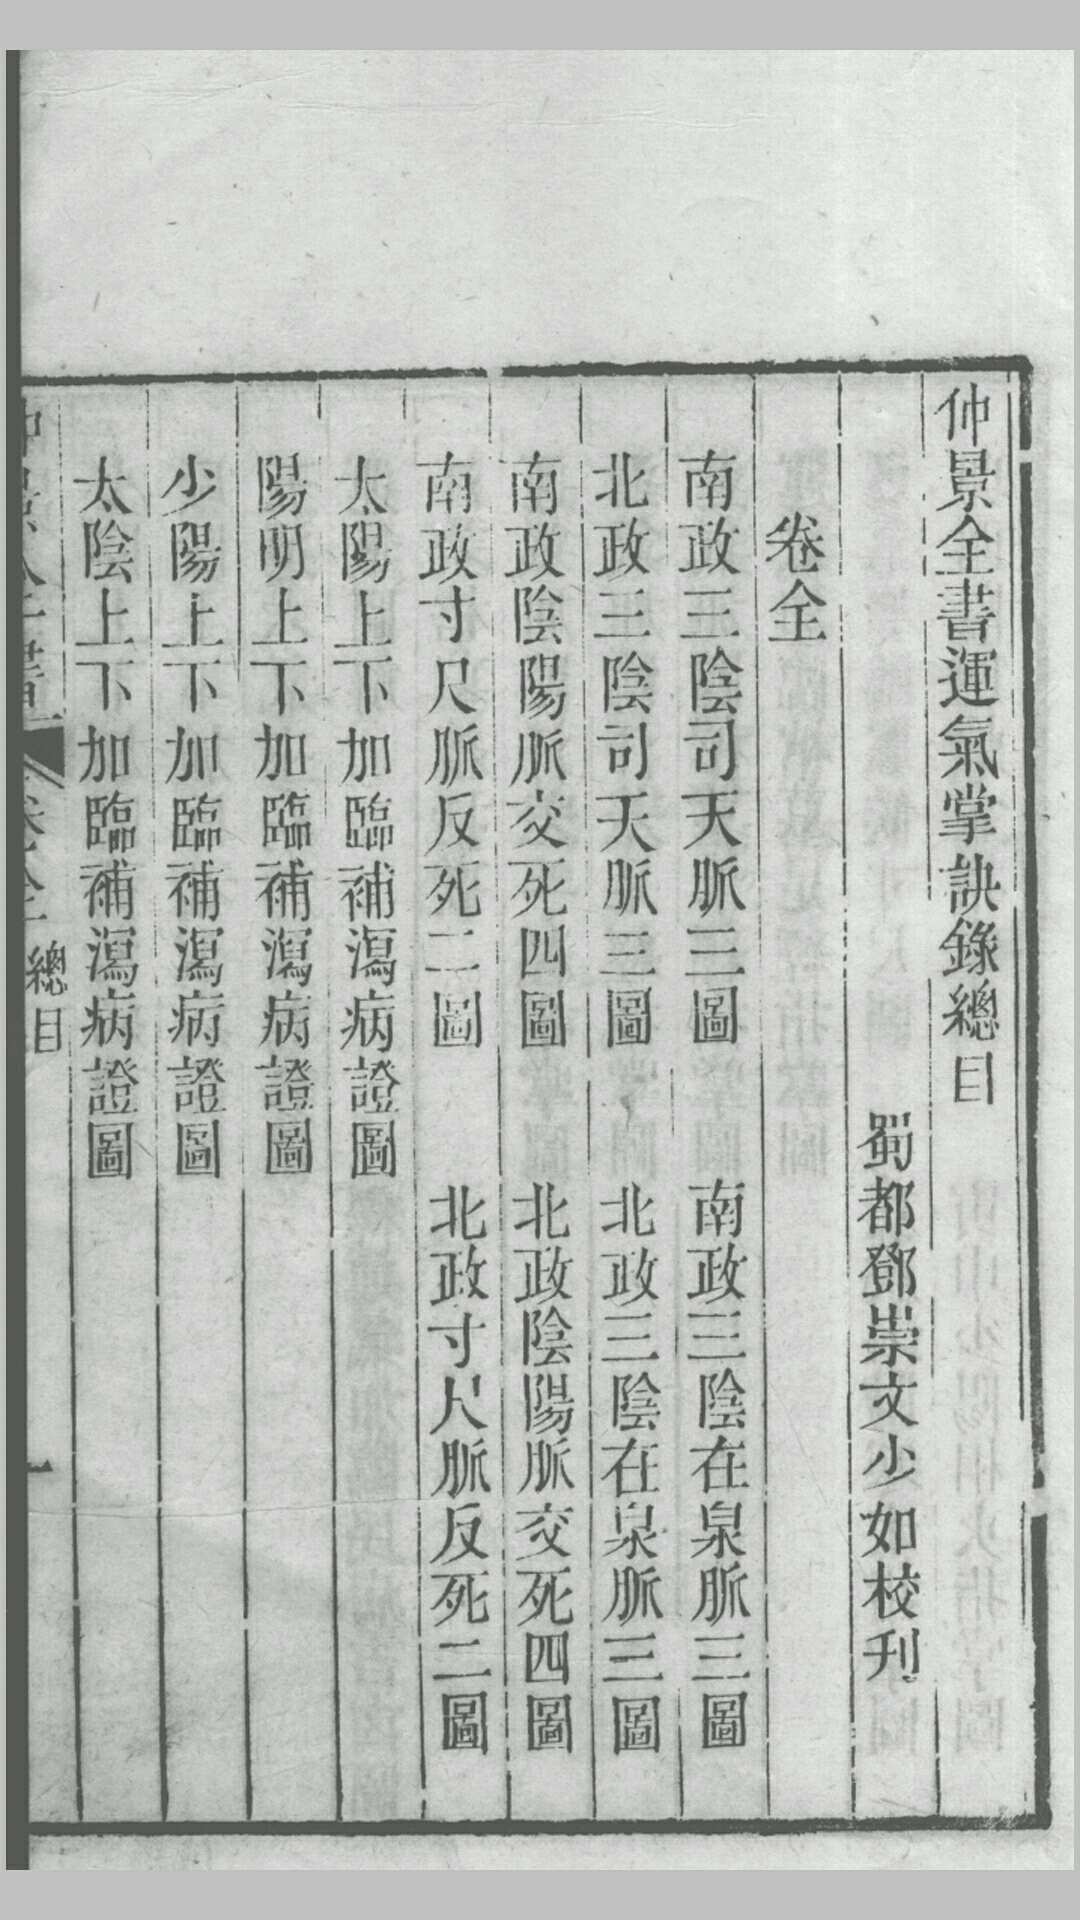 仲景全書運氣掌訣錄總目
蜀都鄧崇文少如校刊
卷全
南政三陰司天脈三圖　南政三陰在泉脈三圖
北政三陰司天脈三圖　北政三陰在泉脈三圖
南政陰陽脈交死四圖　北政陰陽脈交死四圖
南政寸尺脈反死二圖　北政寸尺脈反死二圖
太陽上下加臨補瀉病證圖
陽明上下加臨補瀉病證圖
少陽上下加臨補瀉病證圖
太陰上下加臨補瀉病證圖
總目
一